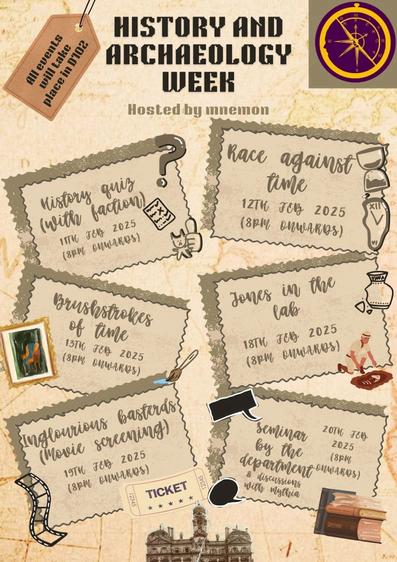 All events
will take
place in D102
HISTORY AND
ARCHAEOLOGY
WEEK
Hosted by mnemon
History quiz
(with faction)
11TH FEB 2025
(8PM ONWARDS)
Race against
time
12TH FEB 2025
(8PM ONWARDS)
Brushstrokes
of time
13TH FEB 2025
(8PM ONWARDS)
Jones in the
lab
18TH FEB 2025
(8PM ONWARDS)
Inglourious basterds
(Movie screening)
19TH FEB 2025
(8PM ONWARDS)
Seminar
by the
department
& discussions
with mythia
20TH FEB
2025
(8PM
ONWARDS)
TICKET